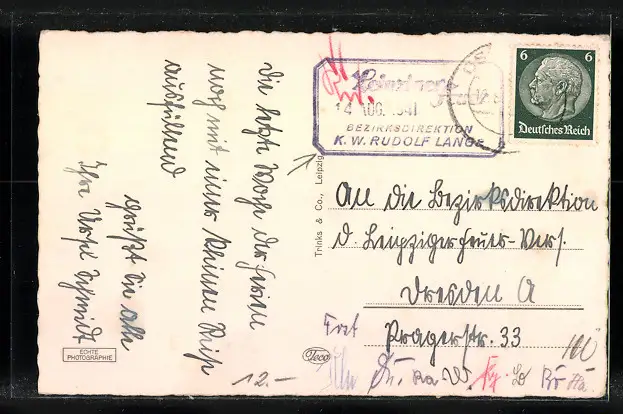 die letzte Woche der Ferien
noch mit einer kleinen Reise
ausfüllend
grüßt Sie alle
Ihre Ursel Schmidt
ECHTE
PHOTOGRAPHIE
Trinks & Co., Leipzig
Teco
14 AUG. 1941
BEZIRKSDIREKTION
K. W. RUDOLF LANGE
6 6
Deutsches Reich
An die Bezirksdirektion
d. Leipziger Feuer-Vers.
Dresden A
Pragerstr. 33
12.–